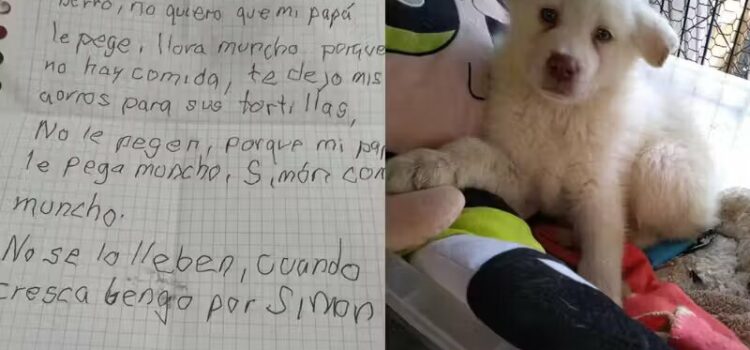 perro, no quiero que mi papá
le pege, llora muncho porque
no hay comida, te dejo mis
aorros para sus tortillas,
No le pegen, porque mi pa
le pega muncho, Simón com
muncho.
No se lo lleben, cuando
cresca bengo por Simon